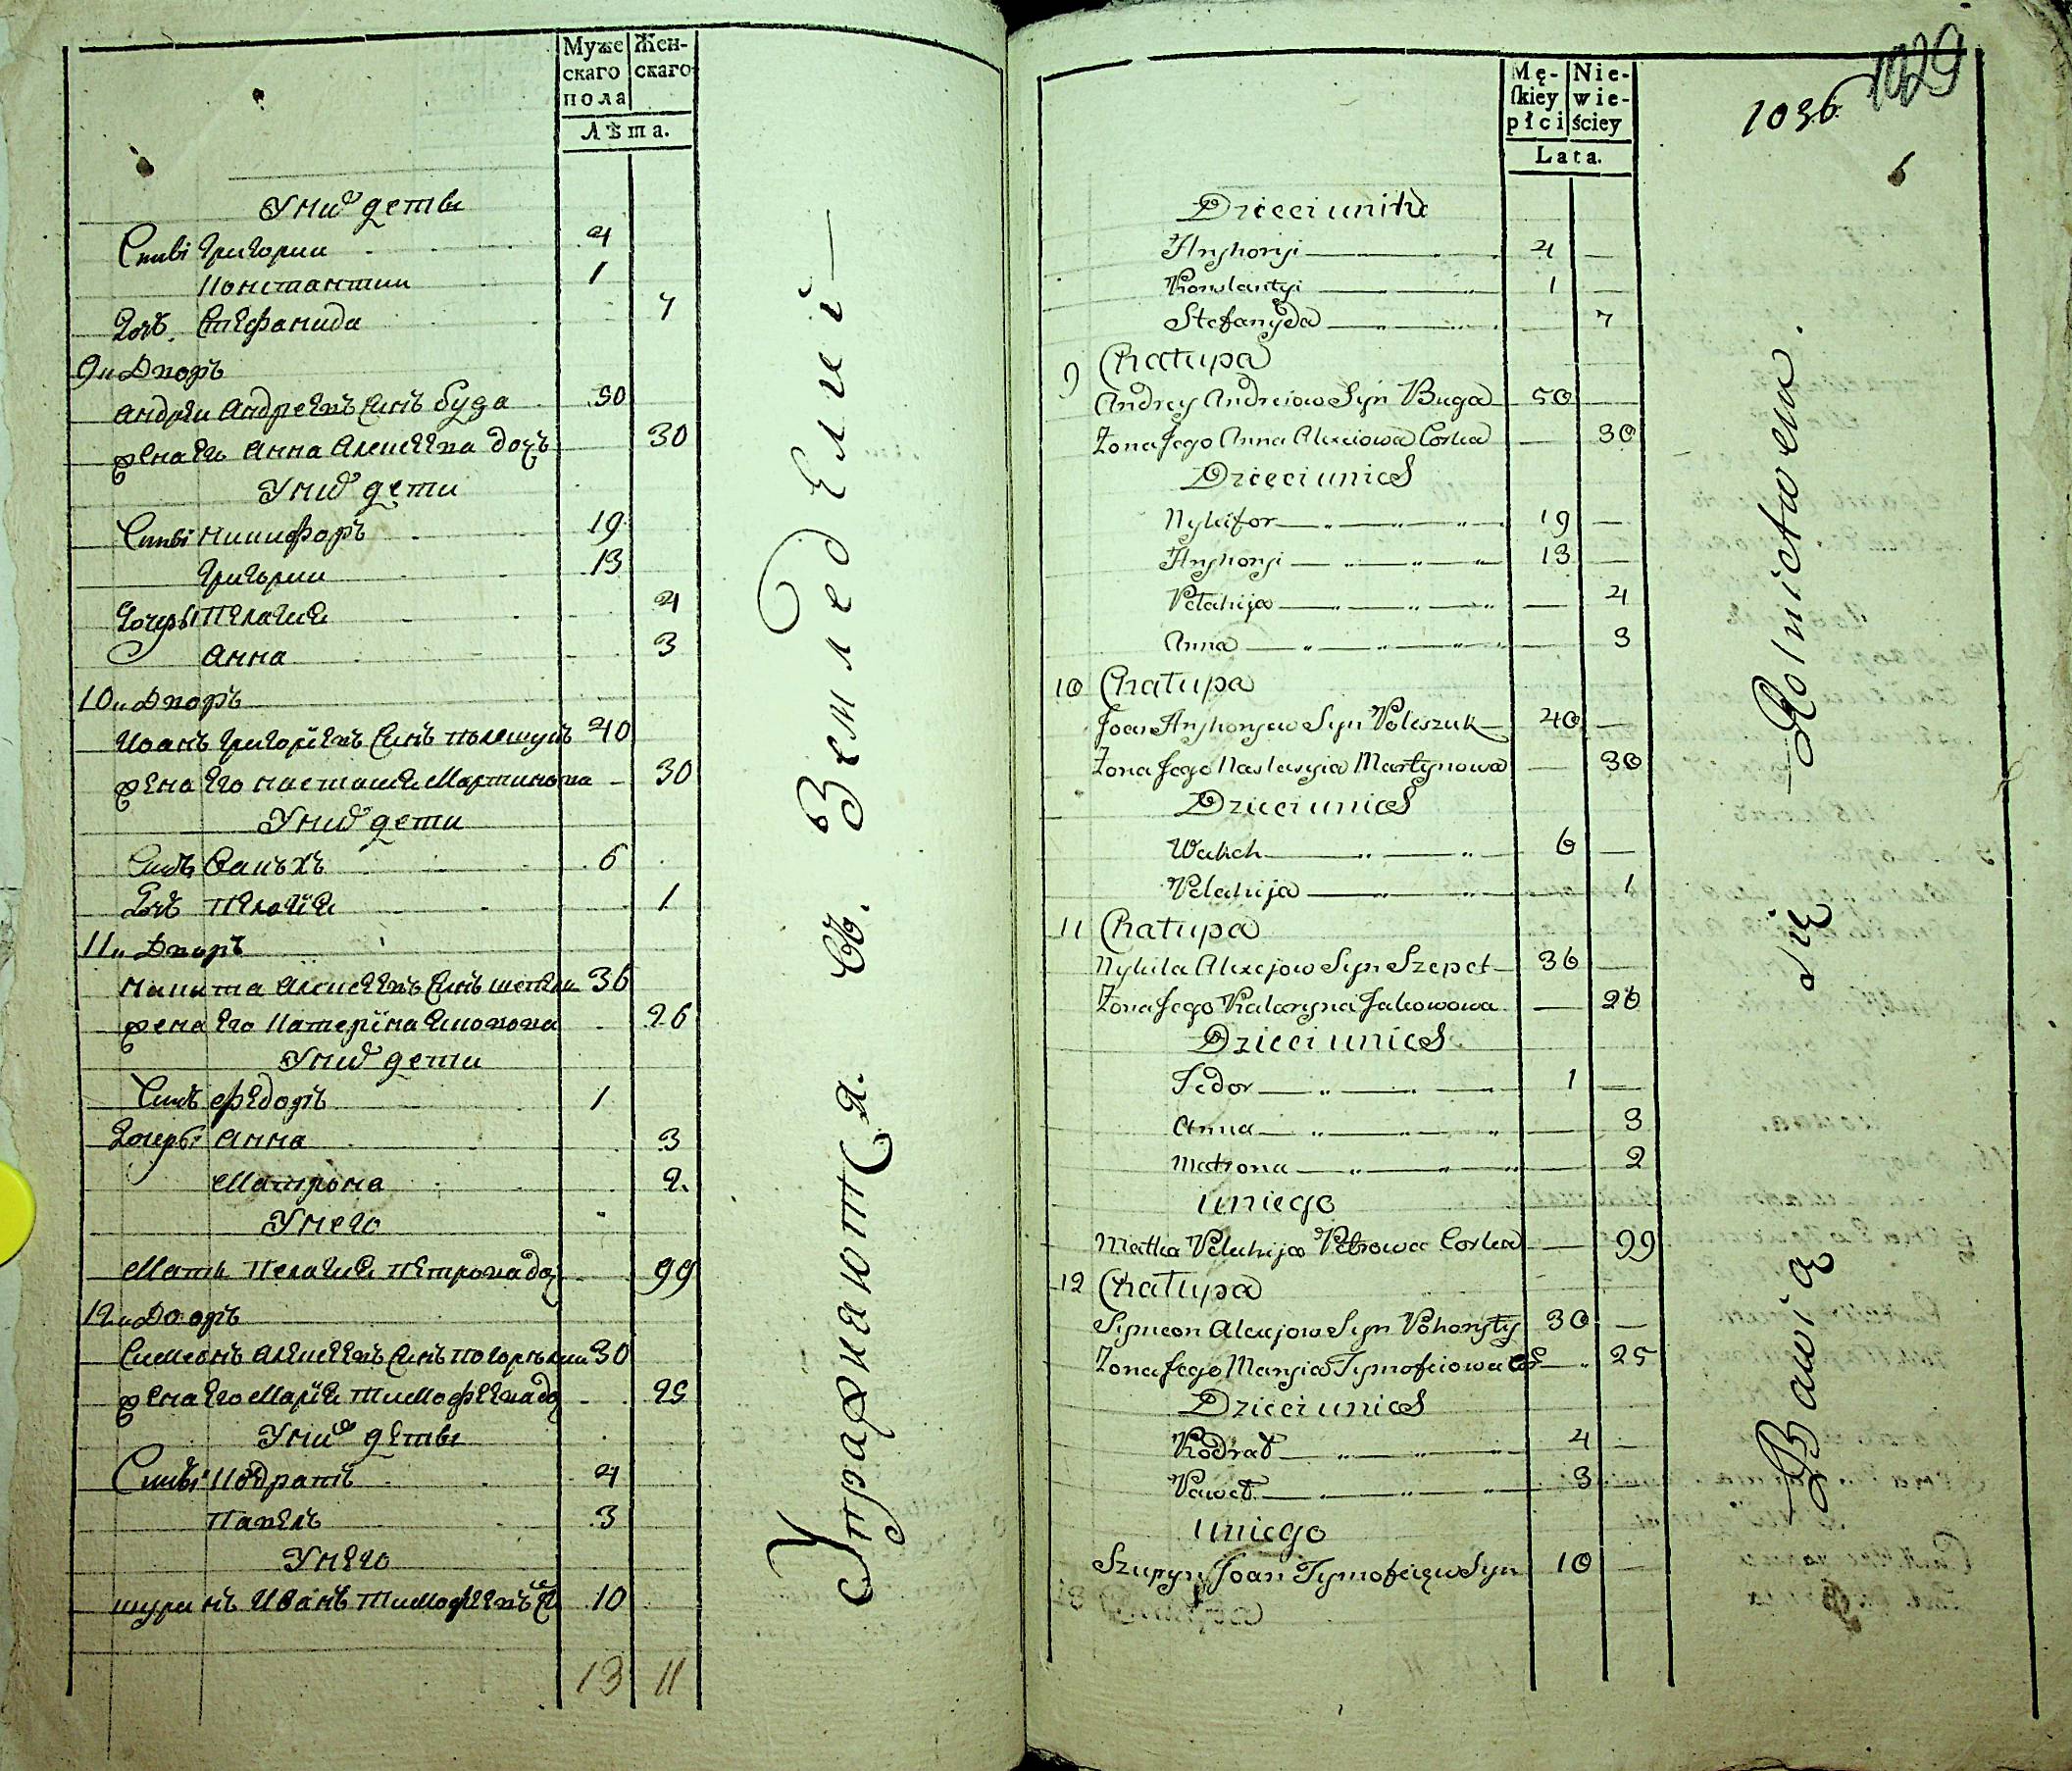 Муже скаго пола
Жен- скаго
Лѣта.
У них дети
Сыны Григории 4
Константин 1
Доч. Стефанида 7
9 и Дворъ
Андрей Андреевъ Сынъ Буга 50
жена Его Анна Алексеева дочъ 30
У них дети
Сыны Никифоръ 19
Григории 13
Дочеры Пелагия 4
Анна 3
10 и Дворъ
Иванъ Григориевъ Сынъ Полещукъ 40
жена Его Настасия Мартинова 30
У них дети
Сынъ 6
Дочъ Пелагия 1
11 и Дворъ
Никита Алексеевъ Сынъ 36
жена Его Катерина 26
У них дети
Сынъ Федоръ 1
Дочеры Анна 3
Матрона 2.
У него
Мать Пелагия Петрова доч 99
12 и Дворъ
Симеонъ Алексеевъ Сынъ Погорилии 30
жена Его Мария Тимофеева доч 25
У них дети
Сыны Кодратъ 4
Павелъ 3
У него
шуринъ Иванъ Тимофеевъ Сы 10
13 11
Упражняются въ Земледелии
Mę- ſkiey płci
Nie- wie- ściey
Lata.
1036
1029
Dzieci unich
Hryhoryi 4
Konstantyi 1
Stefanyda 7
9 Chałupa
Andrey Andreiow Syn Buga 50
Zona Jego Anna Alexiowa Corka 30
Dzieci unich
Nykifor 19
Hryhoryi 13
Pelahija 4
Anna 3
10 Chałupa
Joan Hryhoryew Syn Poleszuk 40
Zona Jego Nastasyia Martynowa 30
Dzieci unich
6
Pelahija 1
11 Chałupa
Nykita Alexejow Syn Szepet 36
Zona Jego Kataryna Jakowowa 26
Dzieci unich
Fedor 1
Anna 3
Matrona 2
uniego
Matka Pelahija Petrowa Corka 99
12 Chałupa
Symeon Alexejow Syn Pohoryły 30
Zona Jego Maryia Tymofeiowa Co 25
Dzieci unich
Kodrat 4
Paweł 3
uniego
Szuryn Joan Tymofeiew Syn 10
Bawią się Rolnictwem.